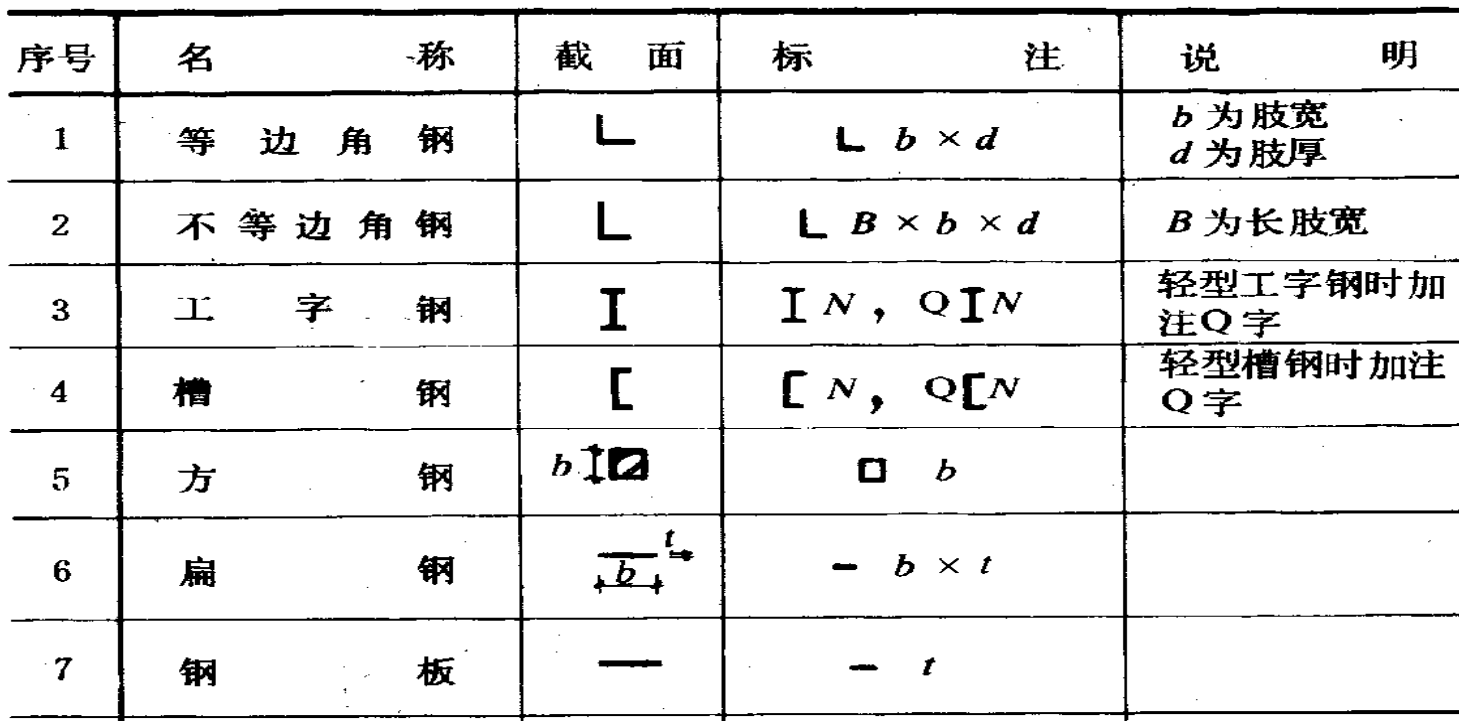 序号 名称 截面 标注 说明
1 等边角钢 L L b × d b 为肢宽
d 为肢厚
2 不等边角钢 L L B × b × d B 为长肢宽
3 工字钢 I I N, Q I N 轻型工字钢时加
注Q字
4 槽钢 [ [ N, Q[N 轻型槽钢时加注
Q字
5 方钢 b □ b
6 扁钢 t
b — b × t
7 钢板 — — t